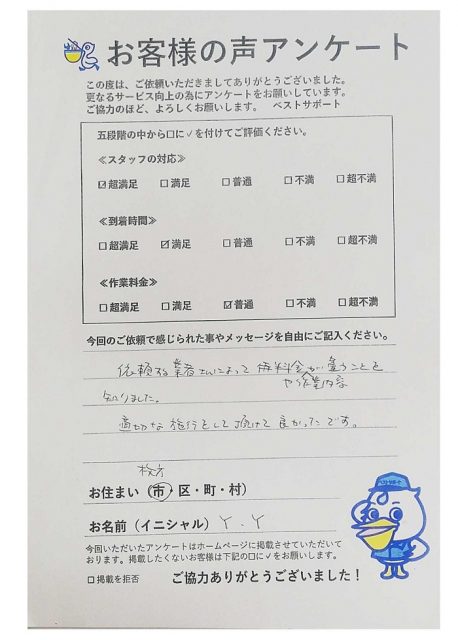 お客様の声アンケート
この度は、ご依頼いただきましてありがとうございました。
更なるサービス向上の為にアンケートをお願いしています。
ご協力のほど、よろしくお願いします。 ベストサポート
五段階の中から□に✓を付けてご評価ください。
≪スタッフの対応≫
☑超満足 □満足 □普通 □不満 □超不満
≪到着時間≫
□超満足 ☑満足 □普通 □不満 □超不満
≪作業料金≫
□超満足 □満足 ☑普通 □不満 □超不満
今回のご依頼で感じられた事やメッセージを自由にご記入ください。
依頼する業者さんによって 料金が違うことを
や作業内容
知りました。
適切な施行をして頂けて良かったです。
枚方
お住まい（市・区・町・村）
お名前（イニシャル） Y.Y
今回いただいたアンケートはホームページに掲載させていただいて
おります。掲載したくないお客様は下記の□に✓をお願いします。
□掲載を拒否 ご協力ありがとうございました！
ベストサポート